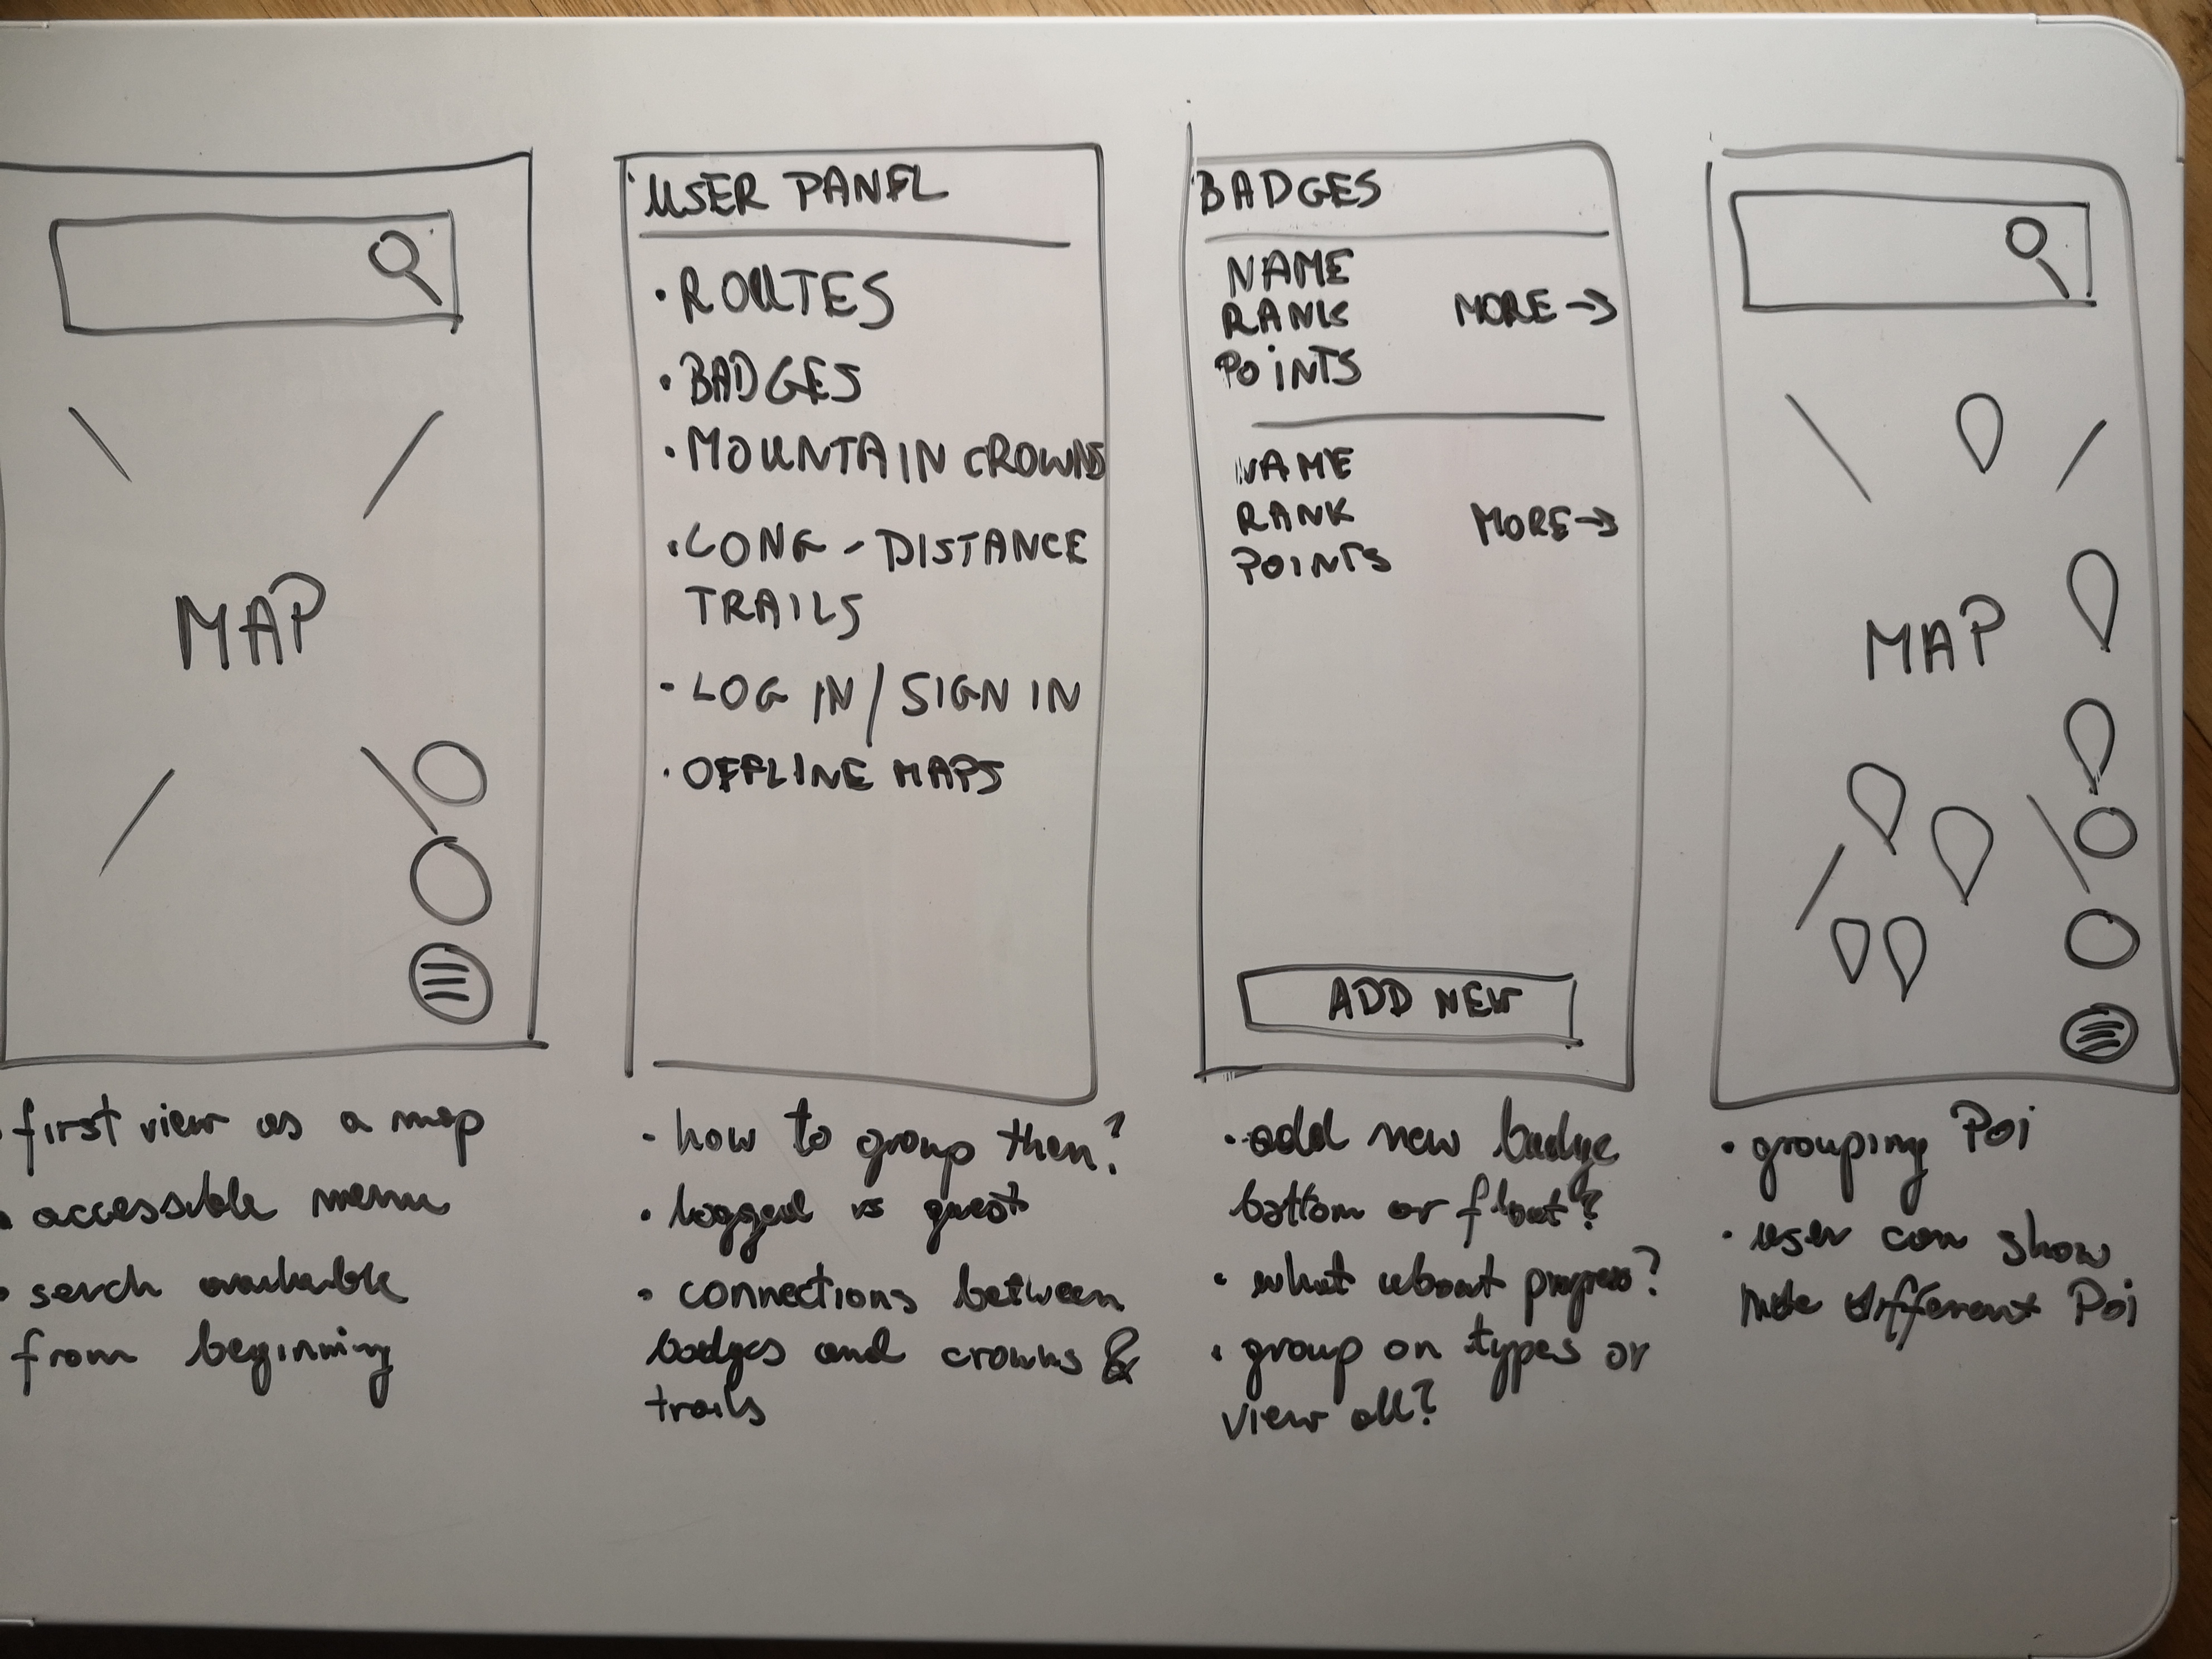 MAP
• first view as a map
• accessible menu
• serch available
from beginning
USER PANEL
• ROUTES
• BADGES
• MOUNTAIN CROWNS
• LONG - DISTANCE
TRAILS
- LOG IN / SIGN IN
• OFFLINE MAPS
• how to group then?
• logged vs guest
• connections between
badges and crowns &
trails
BADGES
NAME
RANK MORE →
POINTS
NAME
RANK MORE →
POINTS
ADD NEW
• add new badge
bottom or float?
• what about progress?
• group on types or
view all?
MAP
• grouping Poi
• user can show
hide different Poi